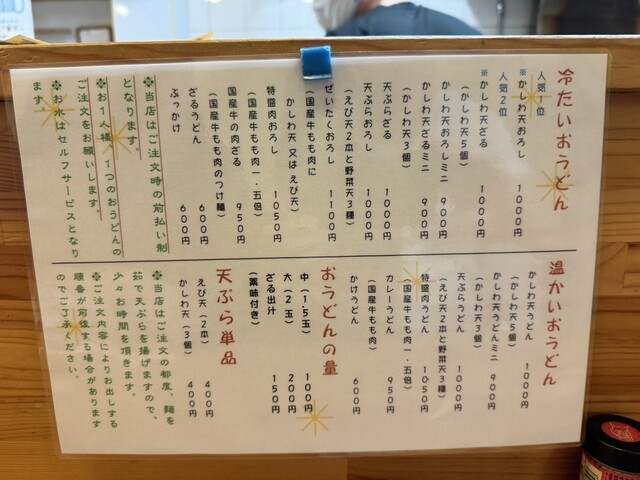 冷たいおうどん
人気1位
※かしわ天おろし 1000円
人気2位
※かしわ天ざる 1000円
(かしわ天5個)
かしわ天おろしミニ 900円
かしわ天ざるミニ 900円
(かしわ天3個)
天ぷらざる 1000円
天ぷらおろし 1000円
(えび天2本と野菜天3種)
ぜいたくおろし 1100円
(国産牛もも肉に
かしわ天 又はえび天)
特盛肉おろし 1050円
(国産牛もも肉一・五倍)
国産牛の肉ざる 950円
(国産牛もも肉のつけ麺)
ざるうどん 600円
ぶっかけ 600円
❖当店はご注文時の前払い制
となります。
❖お1人様、1つのおうどんの
ご注文をお願いします。
❖お水はセルフサービスとなり
ます。
温かいおうどん
かしわ天うどん 1000円
(かしわ天5個)
かしわ天うどんミニ 900円
(かしわ天3個)
天ぷらうどん 1000円
(えび天2本と野菜天3種)
特盛肉うどん 1050円
(国産牛もも肉一・五倍)
カレーうどん 950円
(国産牛もも肉)
かけうどん 600円
おうどんの量
中(1.5玉) 100円
大(2玉) 200円
ざる出汁 150円
(薬味付き)
天ぷら単品
えび天(2本) 400円
かしわ天(3個) 400円
❖当店はご注文の都度、麺を
茹で天ぷらを揚げますので、
少々お時間を頂きます。
❖ご注文内容によりお出しする
順番が前後する場合があります
のでご了承ください。